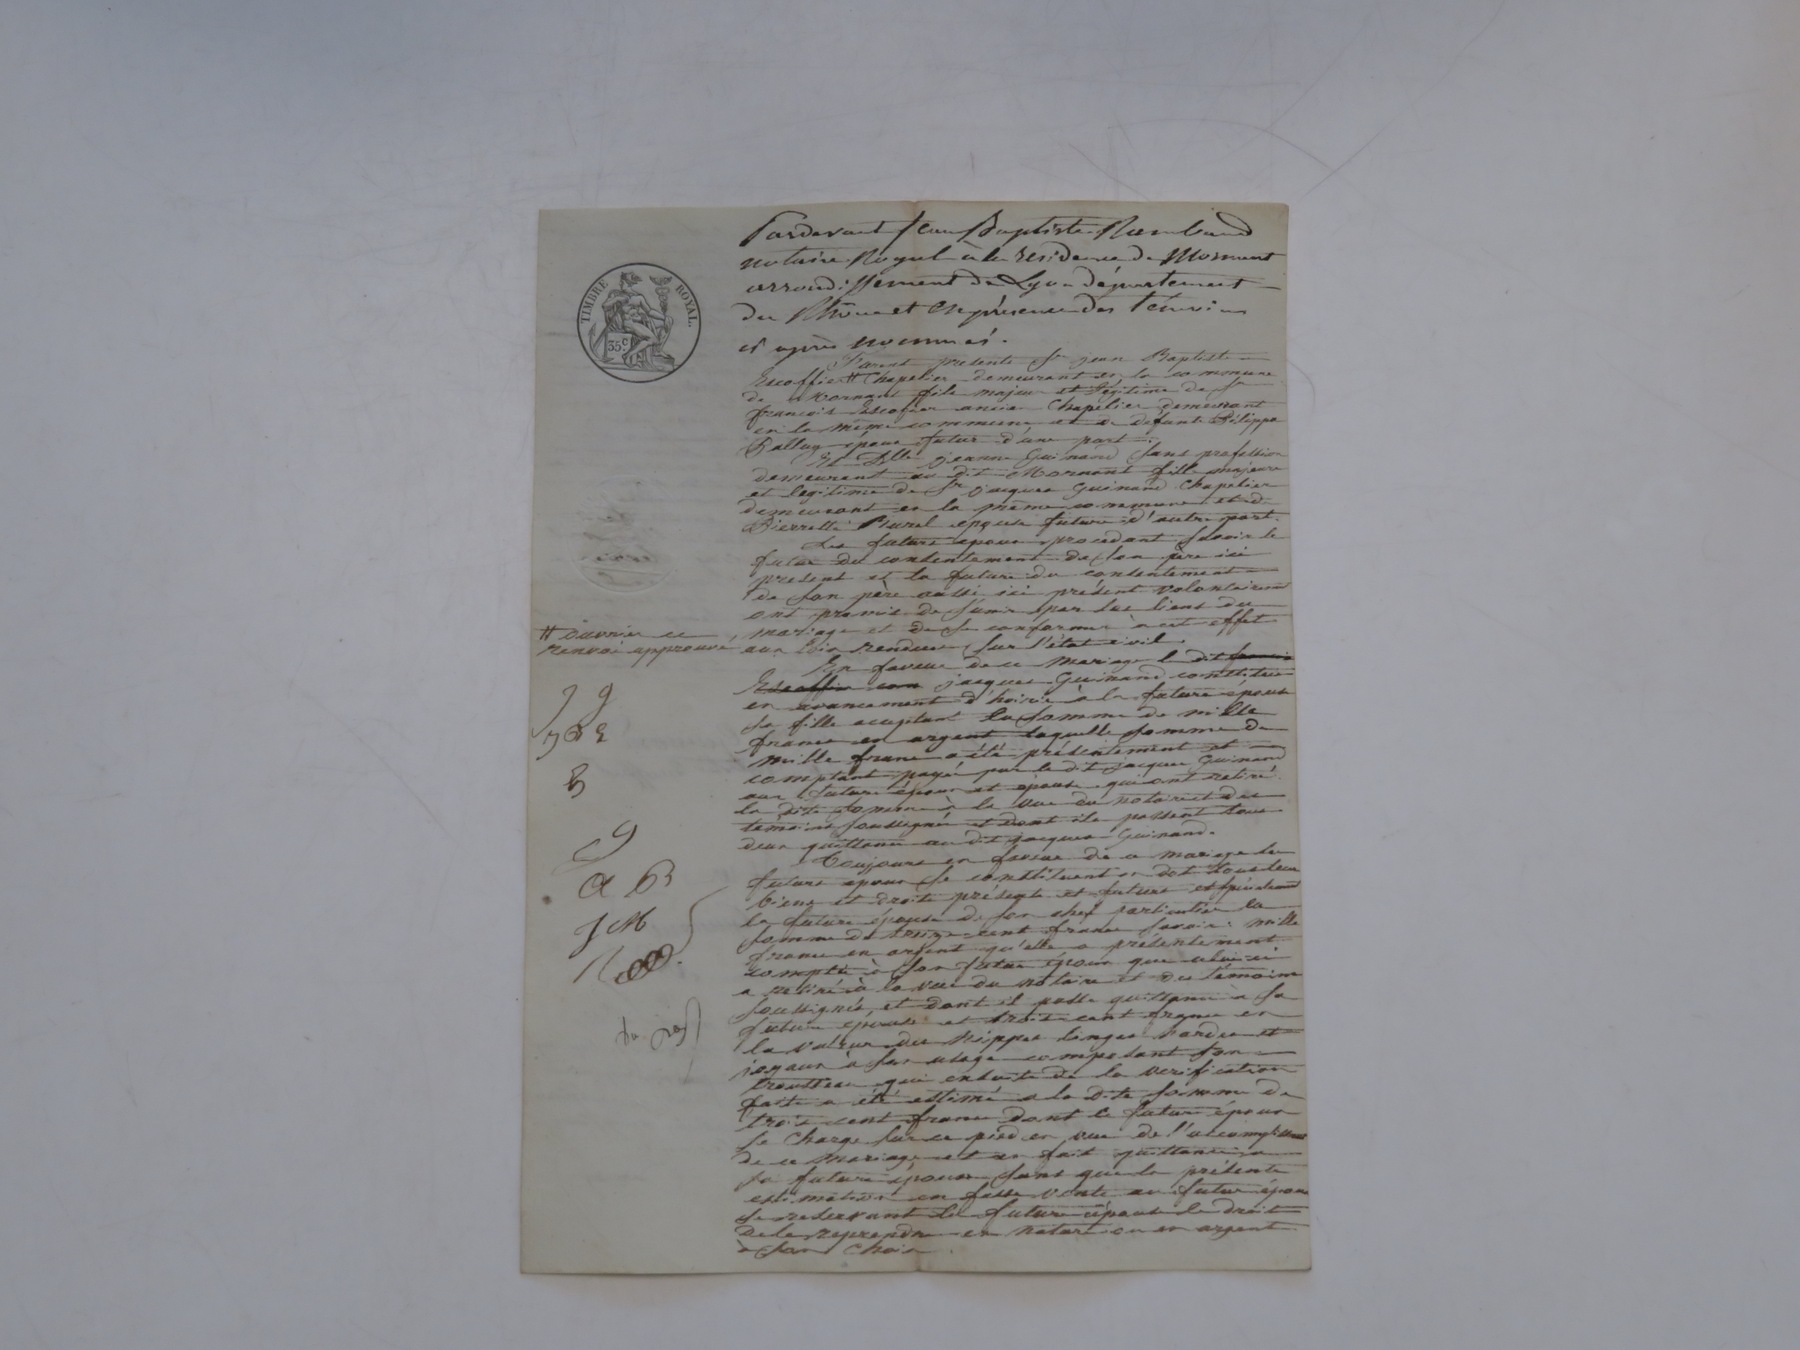 TIMBRE ROYAL.
35c
Pardevant Jean Baptiste Rambaud
notaire Royal à la résidence de Mornant
arrondissement de Lyon département
du Rhône et En présence des témoins
ci après nommés.
Furent présents Sr jean Baptiste
Escoffier # Chapelier demeurant en la commune
de Mornant fils majeur et légitime de Sr
françois Escoffier ancien Chapelier demeurant
en la même commune et de défunte
époux futur d'une part.
Et Dlle jeanne Guinand Sans profession
demeurant au dit Mornant fille majeure
et légitime de Sr jacques Guinand Chapelier
demeurant en la même commune et de
Pierrette epouse future d'autre part.
Les futurs epoux procédant Savoir le
futur du consentement de Son père ici
présent et la future du consentement
de Son père aussi ici présent volontairement
ont promis de S'unir par les liens du
mariage et de Se conformer à cet effet
aux lois rendues Sur l'état civil.
# ouvrier ce
renvoi approuvé
En faveur de ce mariage le dit françois
Escoffier jacques Guinand constitue
en avancement d'hoirie à la future épouse
Sa fille acceptant la Somme de mille
francs en argent laquelle Somme de
mille francs a été présentement et
comptant payée par le dit jacques Guinand
aux futurs époux et epouse qui ont retiré
la dite Somme à la vue du notaire et des
témoins Soussignés et dont ils passent tous
deux quittance au dit jacques Guinand.
Toujours en faveur de ce mariage les
futurs epoux Se constituent en dot tous leurs
biens et droits présents et futurs et spécialement
la future épouse de Son chef particulier la
Somme de treize cent francs Savoir: mille
francs en argent qu'elle a présentement
compté à Son futur époux que celui ci
a retiré à la vue du notaire et des témoins
Soussignés, et dont il passe quittance à Sa
future epouse et trois cent francs en
la valeur des nippes linges hardes et
joyaux à Son usage composant Son
trousseau qui ensuite de la vérification
faite a été estimé à la dite Somme de
trois cent francs dont le futur époux
Se Charge Sur ce pied en vue de l'accomplissement
de ce mariage et en fait quittance à
Sa future épouse Sans que la présente
estimation en fasse vente au futur époux
Se reservant la future épouse le droit
de les reprendre en nature ou en argent
à Son Choix
J G
J B E
B
G
A B
J M